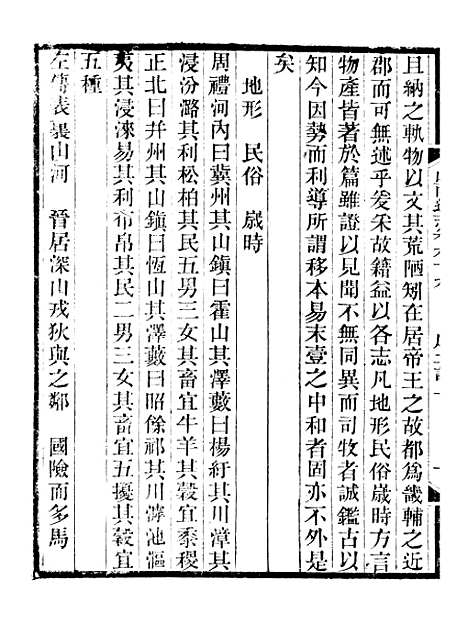 且納之軌物以文其荒陋矧在居帝王之故都為畿輔之近
郡而可無述乎爰采故籍益以各志凡地形民俗歲時方言
物產皆著於篇雖證以見聞不無同異而司牧者誠鑑古以
知今因勢而利導所謂移本易末壹之中和者固亦不外是
矣
地形 民俗 歲時
周禮河內曰冀州其山鎮曰霍山其澤藪曰楊紆其川漳其
浸汾潞其利松柏其民五男三女其畜宜牛羊其穀宜黍稷
正北曰并州其山鎮曰恆山其澤藪曰昭餘祁其川滹池漚
夷其浸淶易其利布帛其民二男三女其畜宜五擾其穀宜
五種
左傳表裏山河 晉居深山戎狄與之鄰 國險而多馬